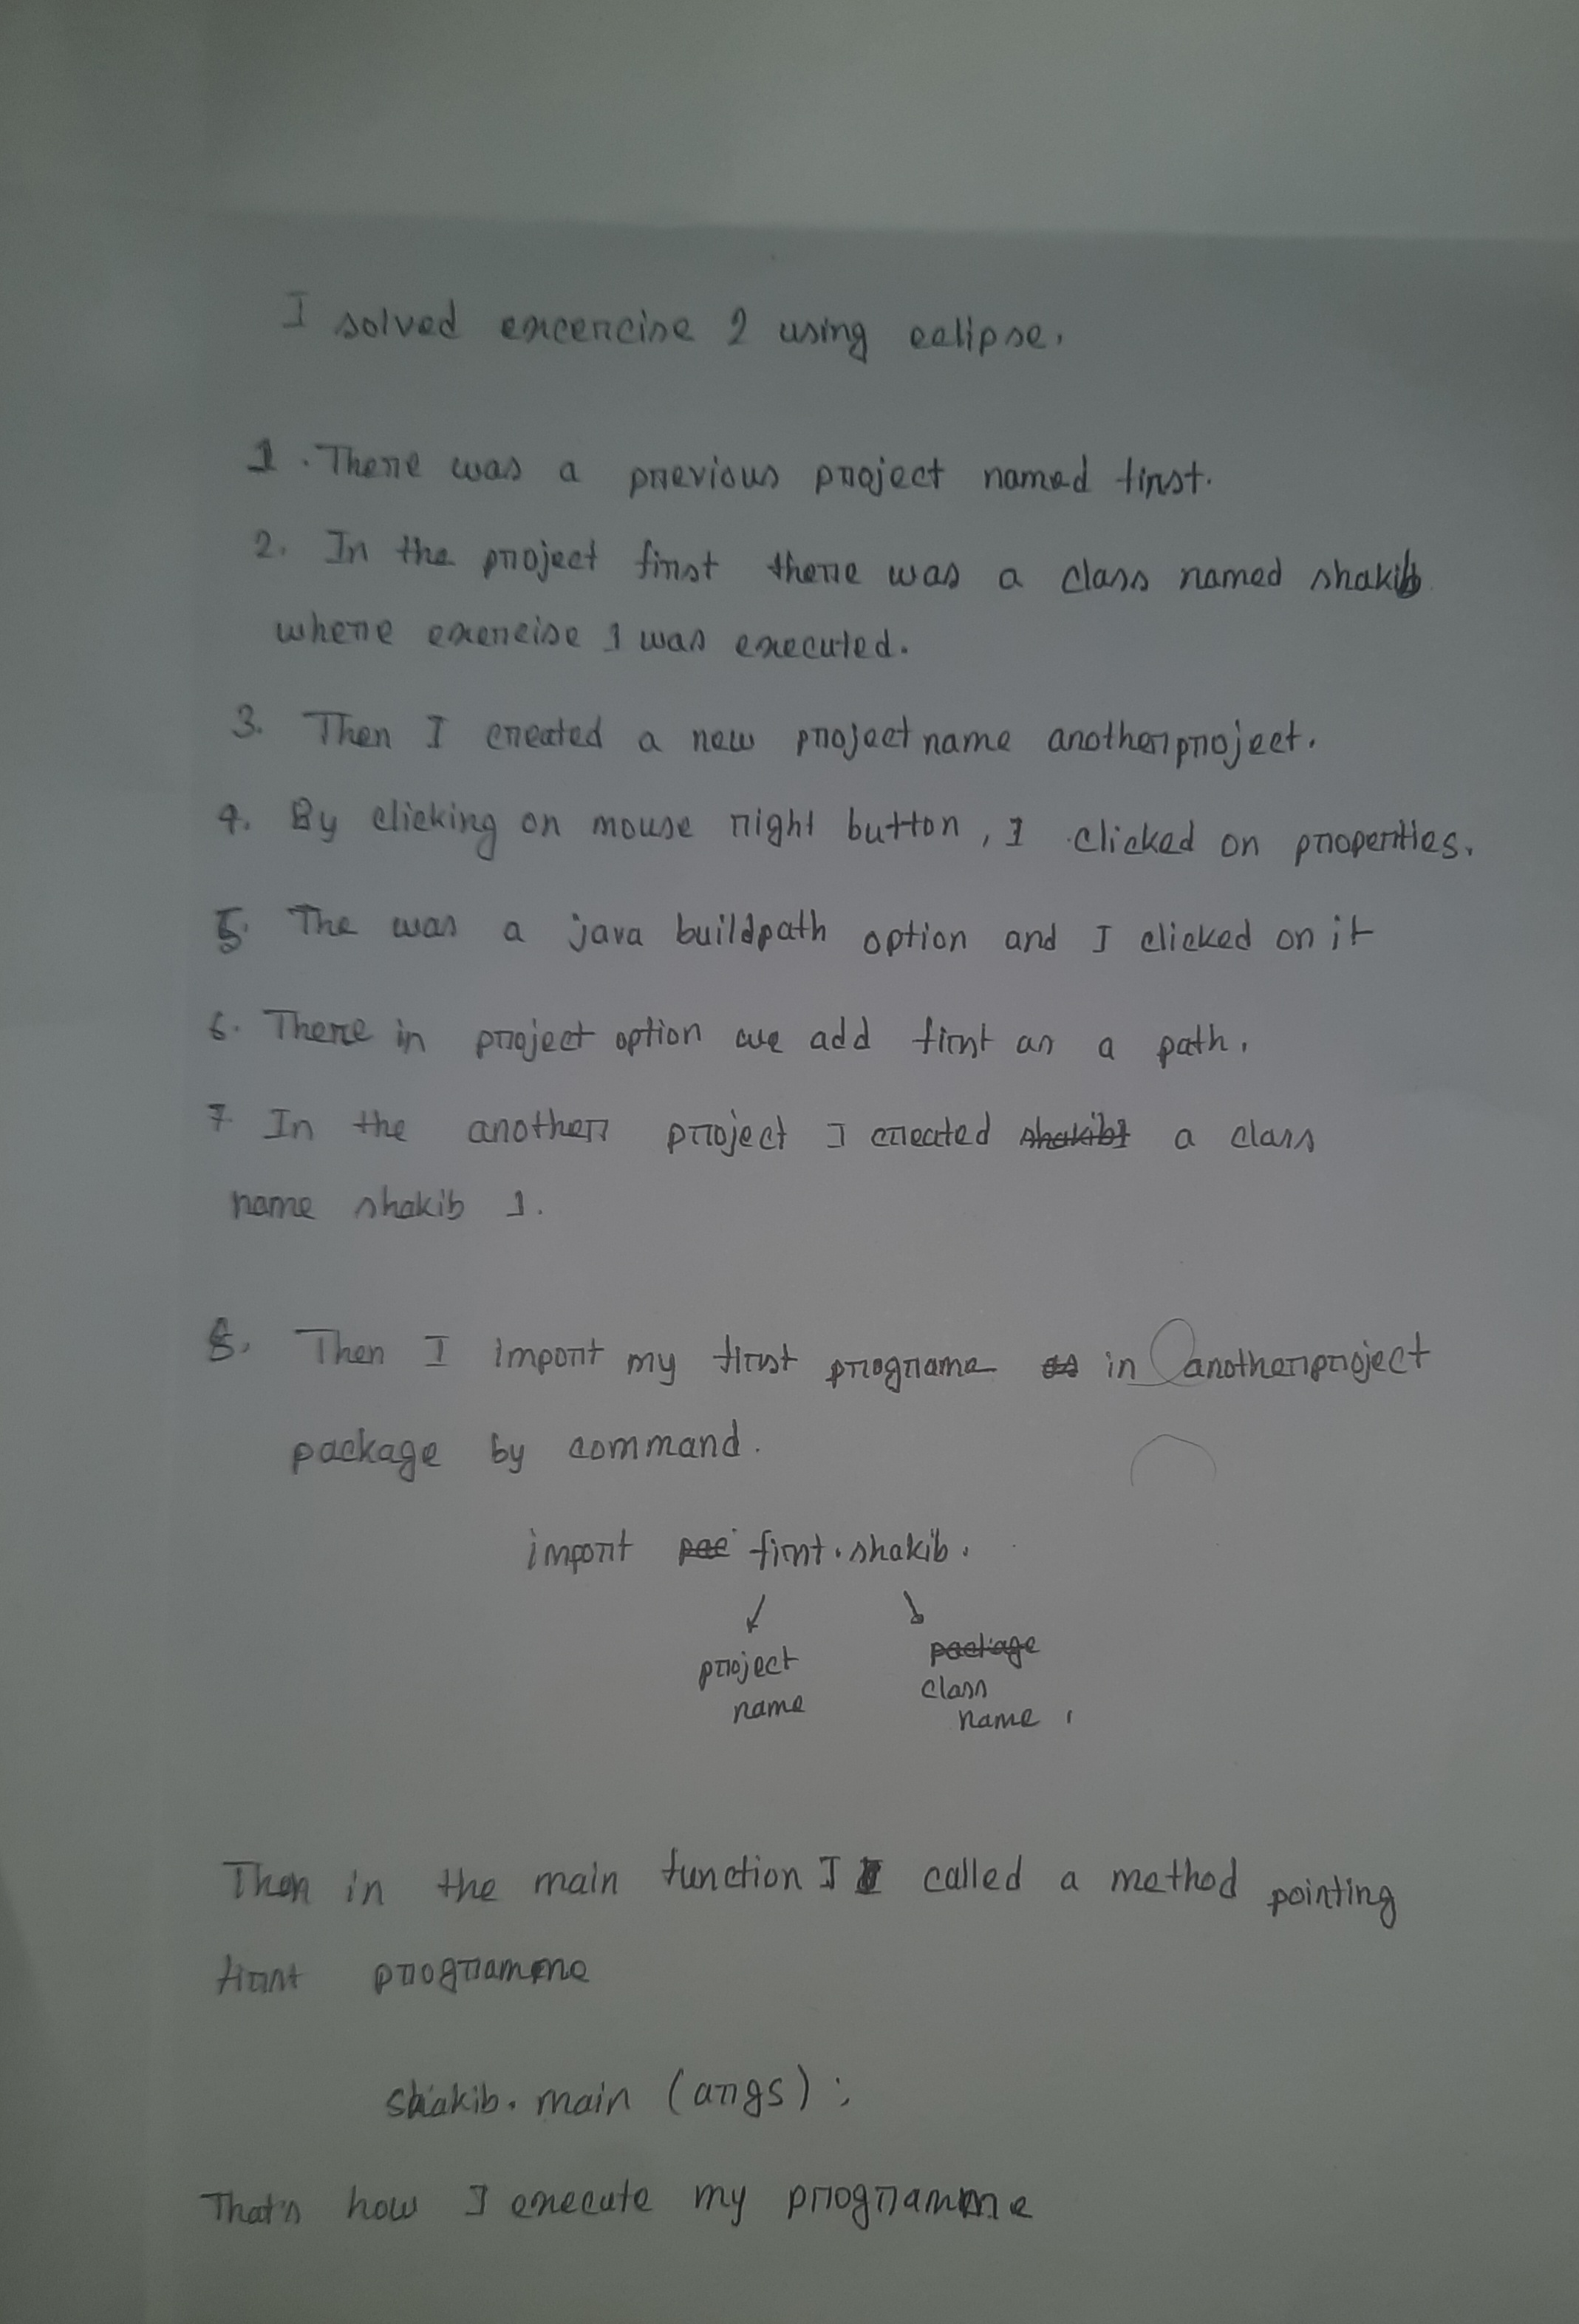 I solved excercise 2 using eclipse.
1. There was a previous project named first.
2. In the project first there was a class named shakib
where exercise 1 was executed.
3. Then I created a new project name anotherproject.
4. By clicking on mouse right button, I clicked on properties.
5. The was a java buildpath option and I clicked on it
6. There in project option we add first as a path.
7. In the another project I created shakib1 a class
name shakib 1.
8. Then I import my first programe in anotherproject
package by command.
import pac first.shakib.
project package
name class
name.
Then in the main function I called a method pointing
first programme
shakib.main (args);
That's how I execute my programme